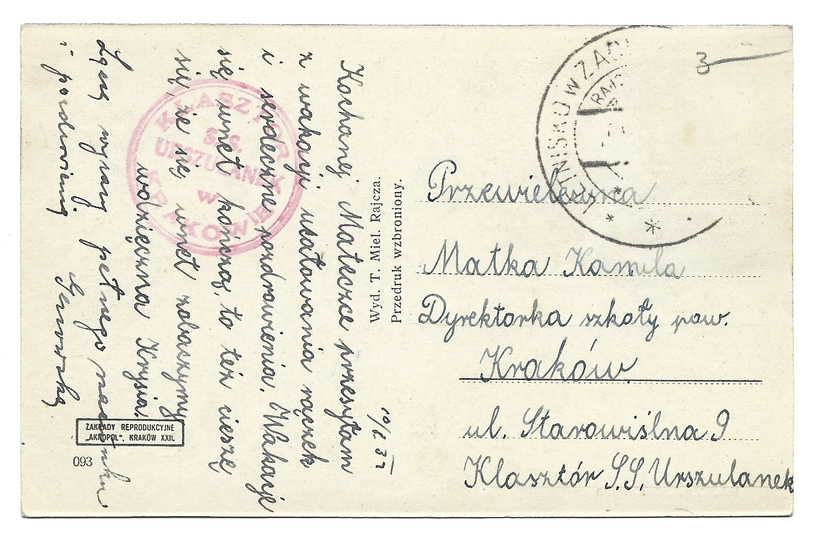 Kochanej Mateczce przesyłam
z wakacji ucałowania rączek
i serdeczne pozdrowienia. Wakacje
się wnet kończą, to też cieszę
się że się wnet zobaczymy
wdzięczna Krysia.
Łączę wyrazy pełnego
i pozdrowienia
KLASZTOR
S.S.
URSZULANEK
w
KRAKOWIE
Wyd. T. Miel. Rajcza.
Przedruk wzbroniony.
ZAKŁADY REPRODUKCYJNE
„AKROPOL", KRAKÓW XXII.
093
3
LETNISKO W
Przewielebna
Matka Kamila
Dyrektorka szkoły pow.
Kraków
ul. Starowiślna 9
Klasztór S.S. Urszulanek